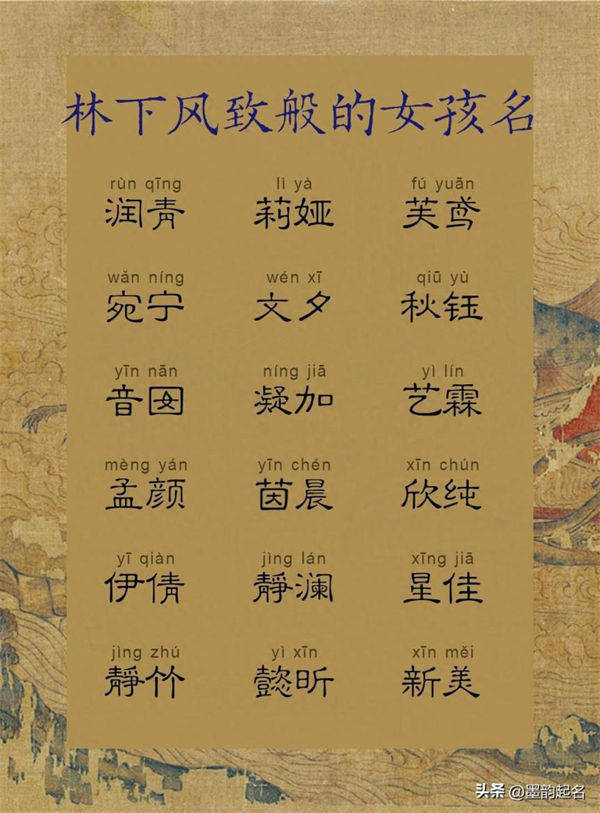 林下风致般的女孩名
rùn qīng lì yà fú yuān
润青 莉娅 芙鸢
wǎn níng wén xī qiū yù
宛宁 文夕 秋钰
yīn nān níng jiā yì lín
音囡 凝加 艺霖
mèng yán yīn chén xīn chún
孟颜 茵晨 欣纯
yī qiàn jìng lán xīng jiā
伊倩 靜澜 星佳
jìng zhú yì xīn xīn měi
靜竹 懿昕 新美
头条 @墨韵起名